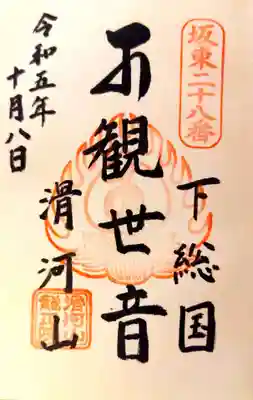 坂東二十八番
下総国
観世音
滑河山
令和五年
十月八日